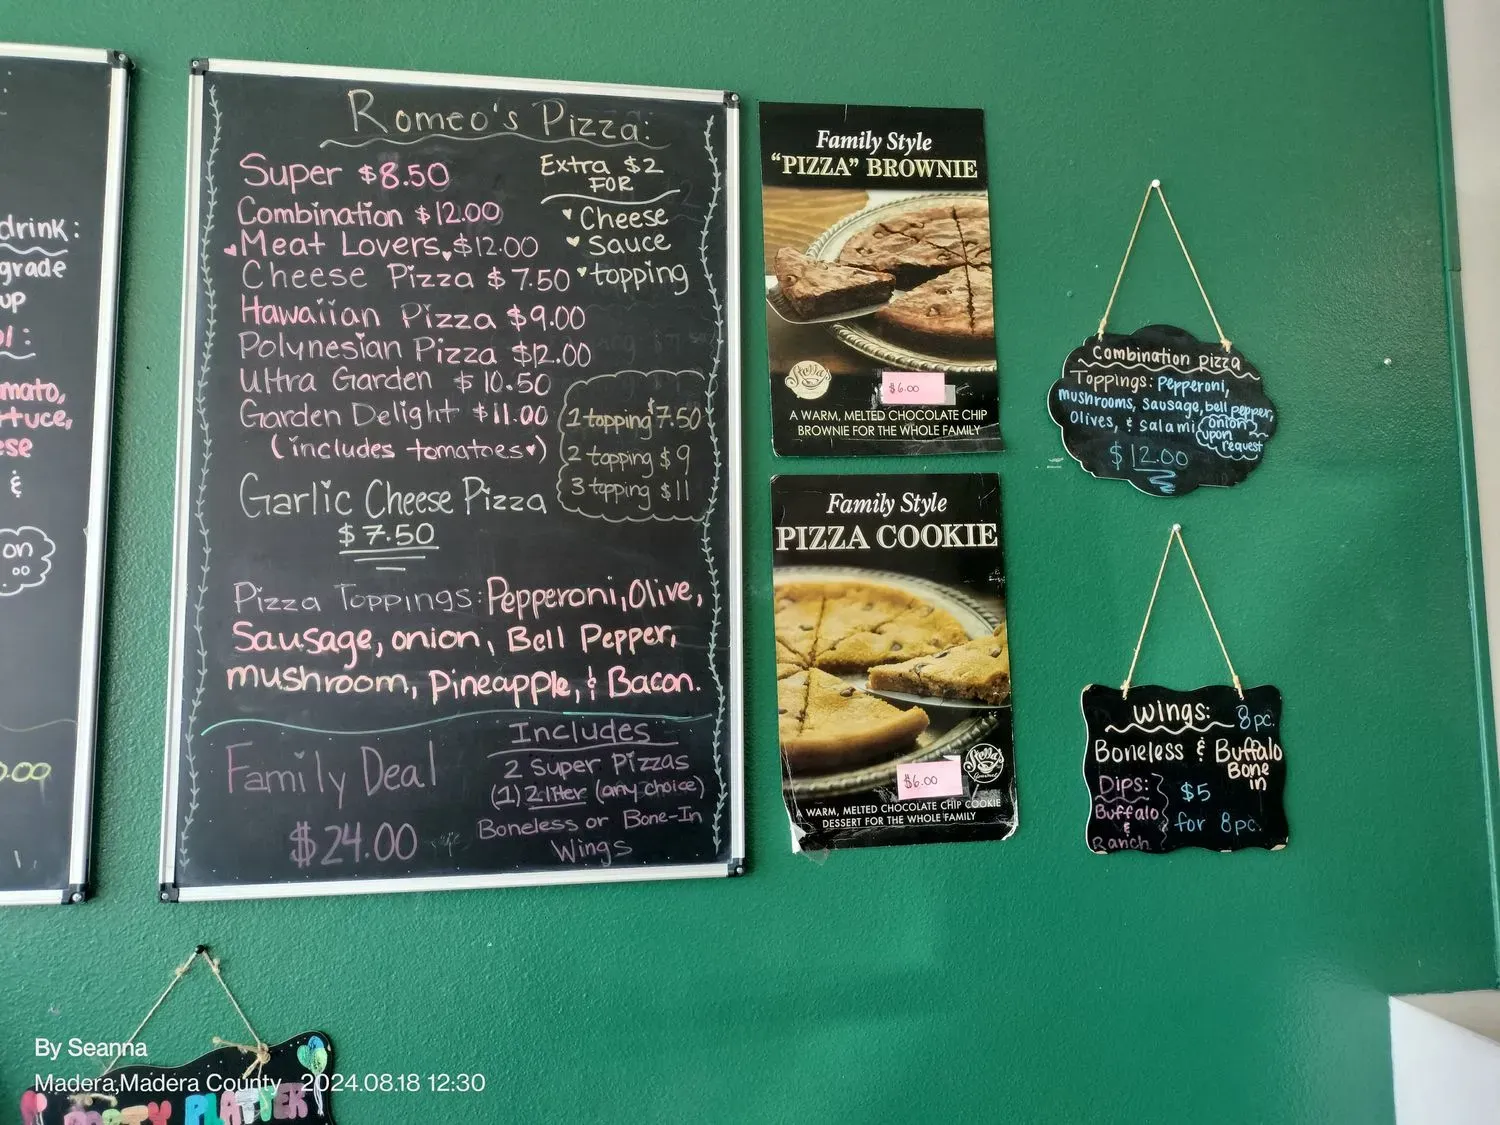 drink:
grade
up
mato,
ttuce,
ese
&
on
Romeo's Pizza:
Super $8.50
Combination $12.00
Meat Lovers $12.00
Cheese Pizza $7.50
Hawaiian Pizza $9.00
Polynesian Pizza $12.00
Ultra Garden $10.50
Garden Delight $11.00
(includes tomatoes)
Garlic Cheese Pizza
$7.50
Extra $2
FOR
Cheese
Sauce
topping
1 topping $7.50
2 topping $9
3 topping $11
Pizza Toppings: Pepperoni, Olive,
Sausage, onion, Bell Pepper,
mushroom, Pineapple, & Bacon.
Family Deal
$24.00
Includes
2 Super Pizzas
(1) 2 liter (any choice)
Boneless or Bone-In
Wings
Family Style
"PIZZA" BROWNIE
Stella's
$6.00
A WARM, MELTED CHOCOLATE CHIP
BROWNIE FOR THE WHOLE FAMILY
Family Style
PIZZA COOKIE
Stella's
$6.00
A WARM, MELTED CHOCOLATE CHIP COOKIE
DESSERT FOR THE WHOLE FAMILY
Combination pizza
Toppings: Pepperoni,
mushrooms, sausage, bell pepper,
Olives, & salami
onion
upon
request
$12.00
Wings: 8pc.
Boneless & Buffalo
Bone
in
Dips:
Buffalo
&
Ranch
$5
for 8pc.
PARTY PLATTER
By Seanna
Madera,Madera County 2024.08.18 12:30